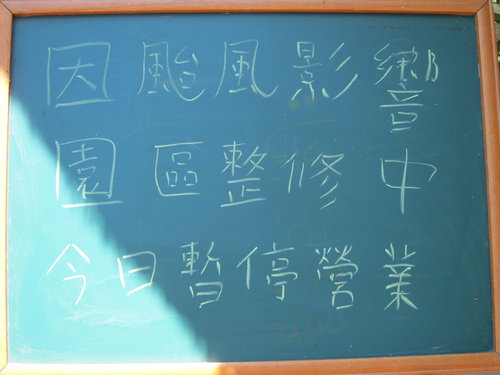 因颱風影響
園區整修中
今日暫停營業